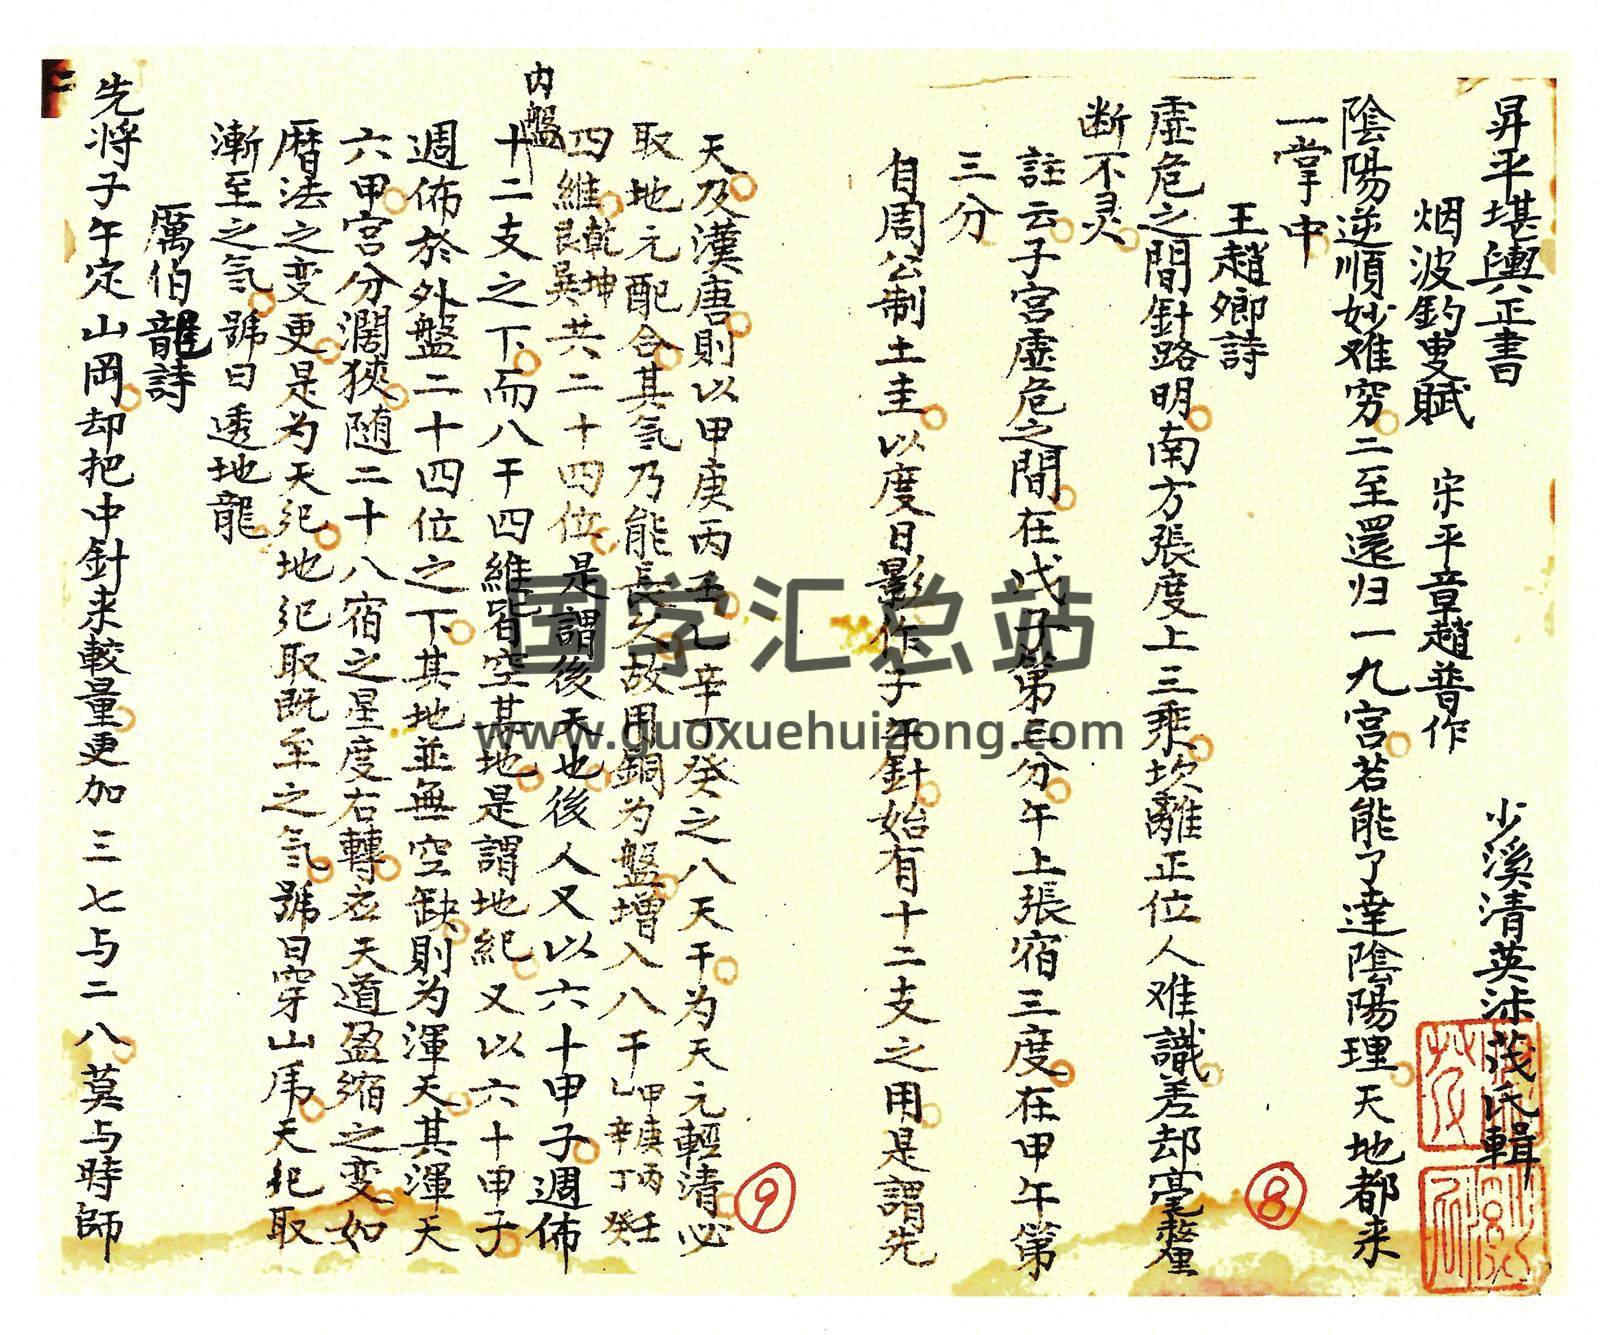 昇平堪輿正書
少溪清英沭茂氏輯
烟波釣叟賦 宋平章趙普作
陰陽逆順妙难穷二至還归一九宮若能了達陰陽理天地都来
一掌中
王趙卿詩
虛危之間針路明南方張度上三乘坎離正位人难識差却毫釐
断不灵
註云子宮虛危之間在戊子第三分午上張宿三度在甲午第
三分
自周公制土圭以度日影作子午針始有十二支之用是謂先
天及漢唐則以甲庚丙壬乙辛丁癸之八天干为天元輕清必
取地元配合其氣乃能長久故用銅为盤增入八干甲庚丙壬乙辛丁癸
四維乾坤艮巽共二十四位是謂後天也後人又以六十甲子週佈
内盤
十二支之下而八干四維皆空其地是謂地紀又以六十甲子
週佈於外盤二十四位之下其地並無空缺則为渾天其渾天
六甲宮分濶狹随二十八宿之星度右轉应天道盈缩之变如
曆法之变更是为天纪地纪取既至之氣號曰穿山虎天纪取
漸至之氣號曰透地龍
厲伯龍詩
先将子午定山岡却把中針来較量更加三七与二八莫与時師
⑧
⑨
国学汇总站
www.guoxuehuizong.com